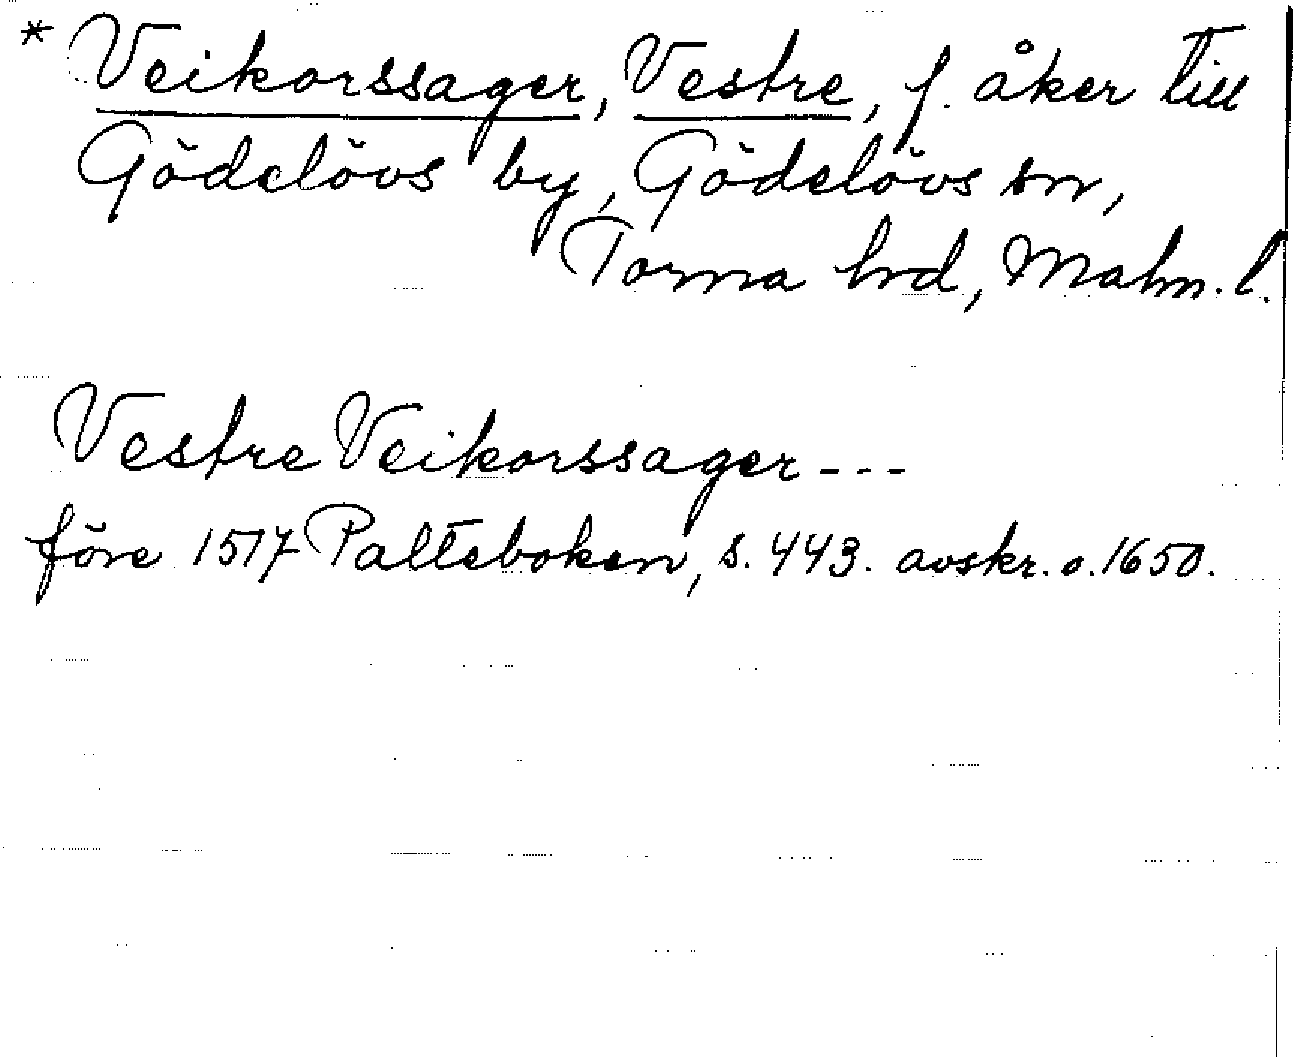 * Veikorssager, Vestre, f. åker till
Gödelövs by, Gödelövs sn,
Torna hrd, Malm. l.
Vestre Veikorssager - - -
före 1517 Palteboken, s. 443. avskr. o. 1650.